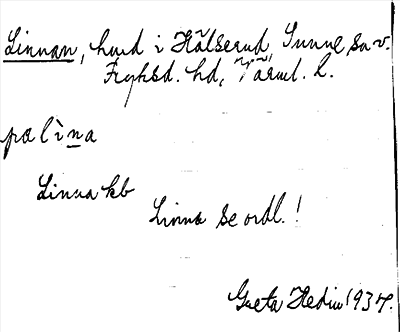 Linnan, hmd i Hälserud, Sunne sn v.
Fryksd. hd, Värml. l.
pa lìna
Linna kb
Linna se ordl.!
Greta Hedin 1937.